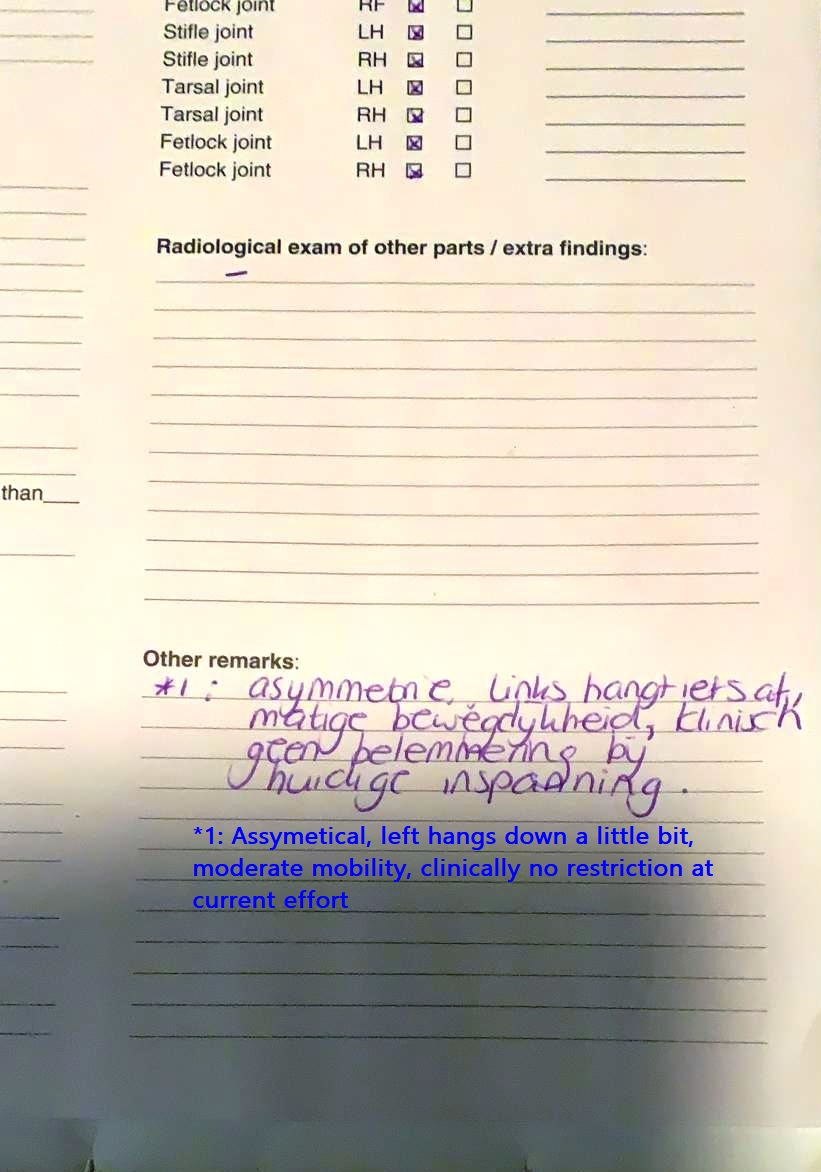 Fetlock joint RF
Stifle joint LH
Stifle joint RH
Tarsal joint LH
Tarsal joint RH
Fetlock joint LH
Fetlock joint RH
Radiological exam of other parts / extra findings:
than
Other remarks:
*1: asymmetrie, links hangt iets af,
matige bewegelykheid, klinisch
geen belemmering by
huidige inspanning.
*1: Assymetical, left hangs down a little bit,
moderate mobility, clinically no restriction at
current effort